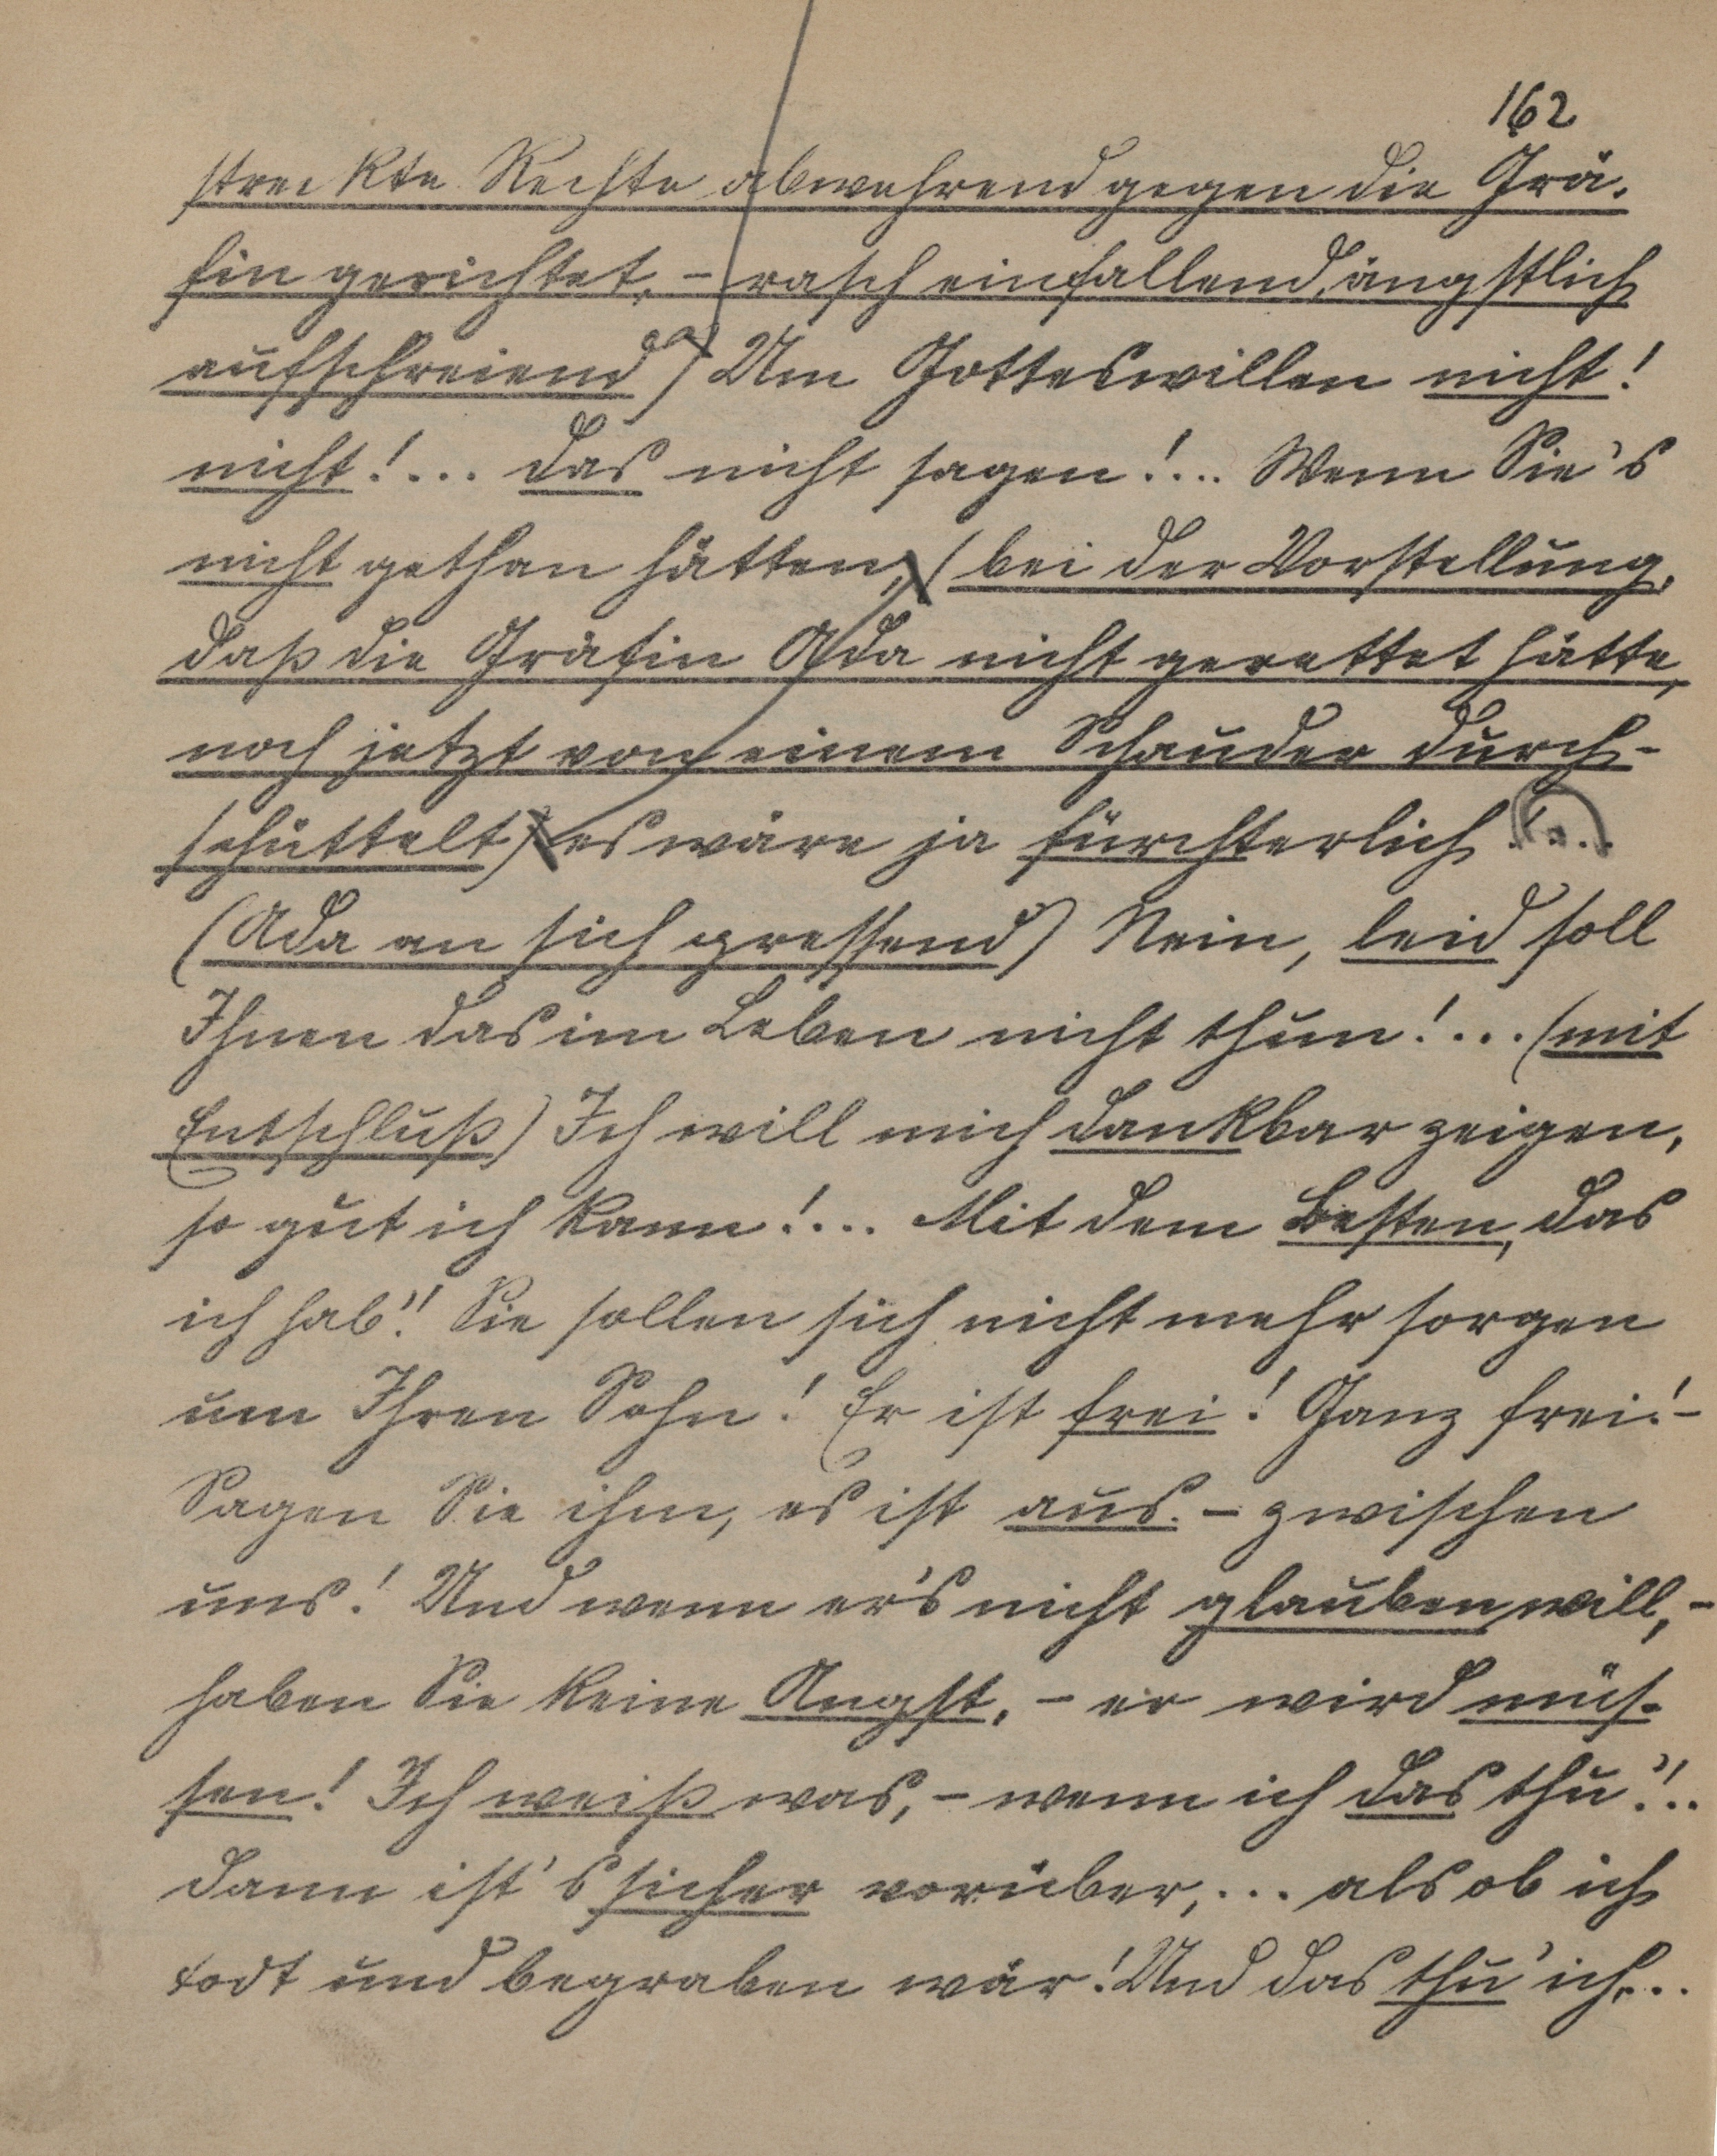 162
streckte Rechte abwehrend gegen die Grä-
fin gerichtet, - rasch einfallend, ängstlich
aufschreiend) Um Gotteswillen nicht!
nicht!... das nicht sagen!... Wenn Sie's
nicht gethan hätten, (bei der Vorstellung,
daß die Gräfin Ada nicht gerettet hätte,
noch jetzt von einem Schauder durch-
schüttelt) es wäre ja fürchterlich!...
(Ada an sich pressend) Nein, leid soll
Ihnen das im Leben nicht thun!... (mit
Entschluß) Ich will mich dankbar zeigen,
so gut ich kann!... Mit dem Besten, das
ich hab'! Sie sollen sich nicht mehr sorgen
um Ihren Sohn! Er ist frei! Ganz frei! -
Sagen Sie ihm, es ist aus. - zwischen
uns! Und wenn er's nicht glauben will, -
haben Sie keine Angst, - er wird müs-
sen! Ich weiß was, - wenn ich das thu'!..
dann ist's sicher vorüber,... als ob ich
todt und begraben wär! Und das thu' ich...